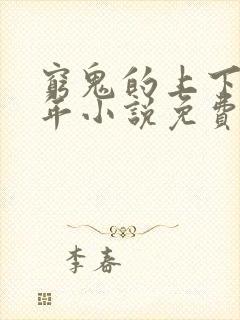 窮鬼的上下
年小說免費
李春